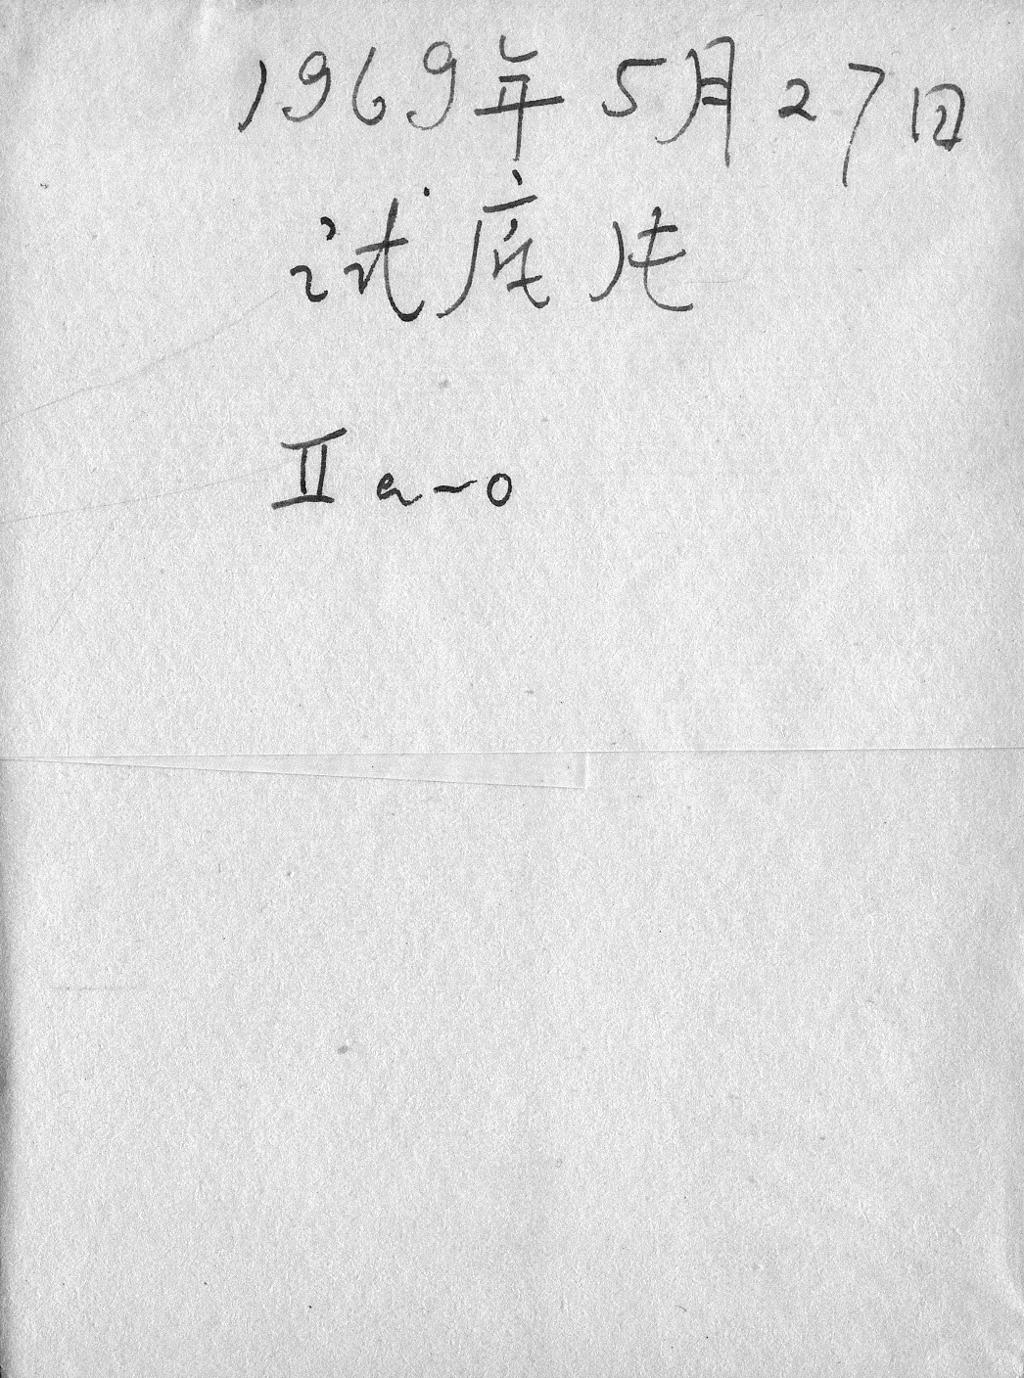 1969年5月27日
试底片
II a-o